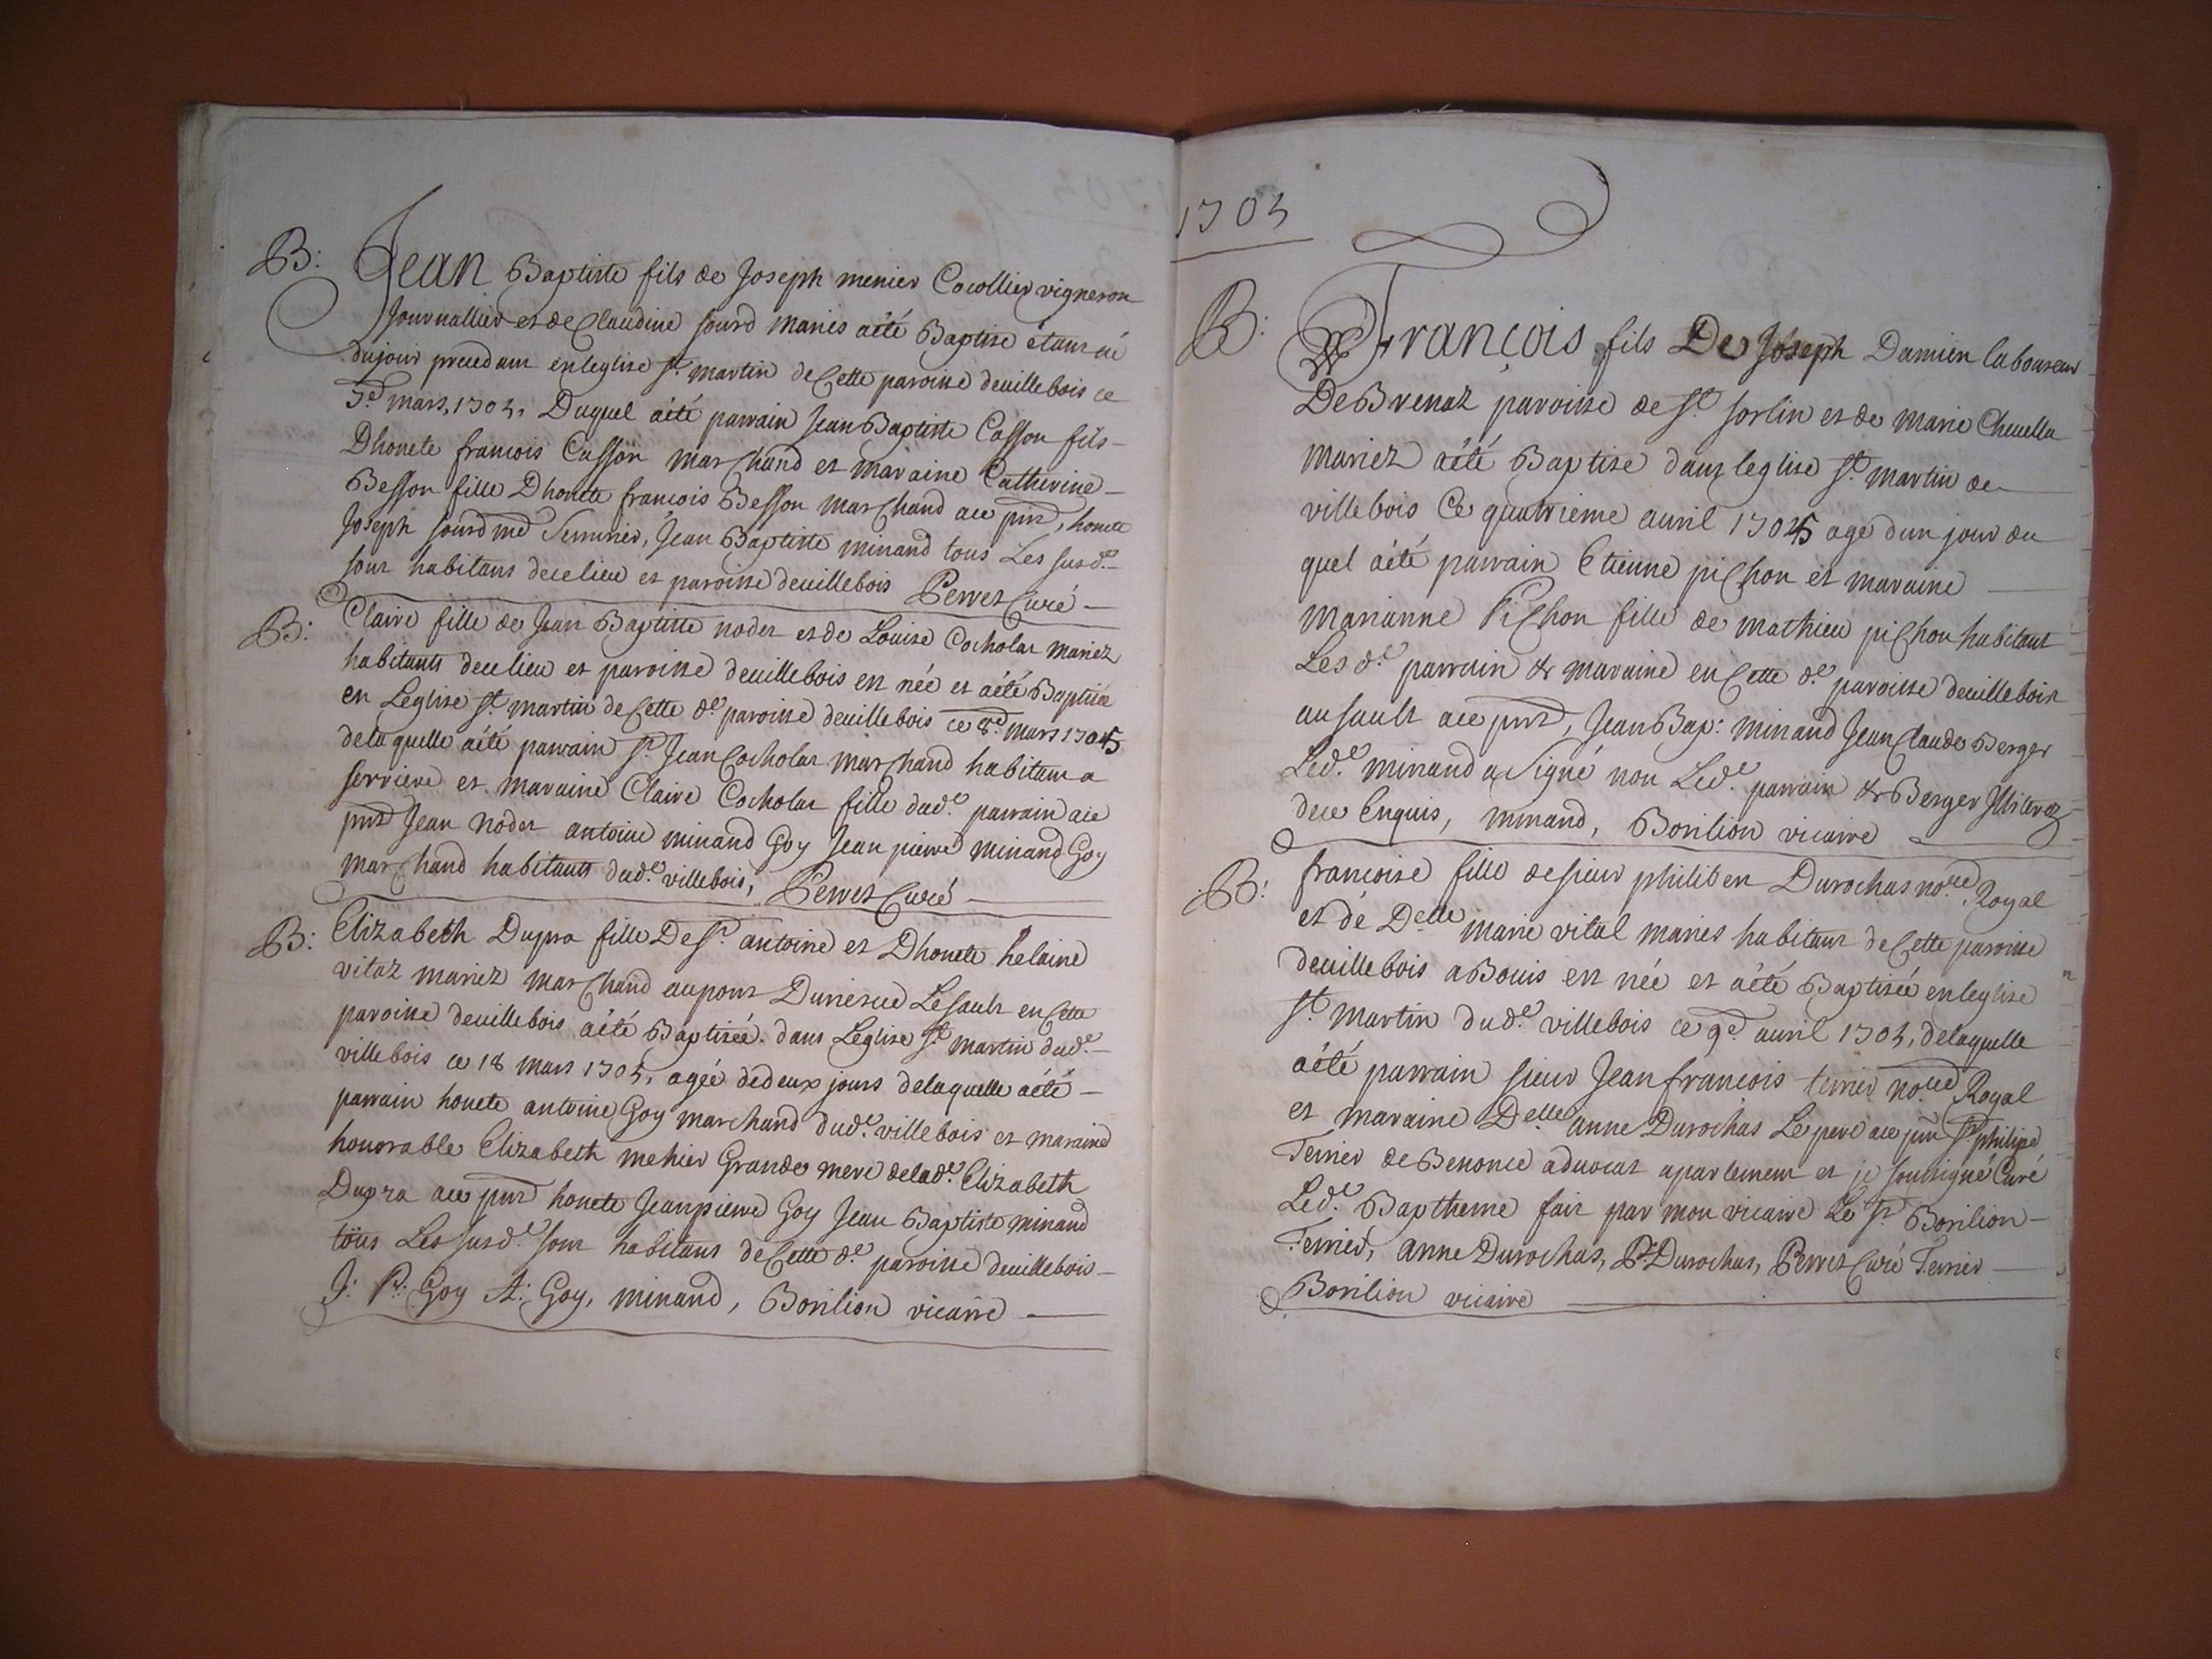 B: Jean Baptiste fils de Joseph menier Cocollier vigneron
Journallier et de Claudine sourd maries aété Baptise étant né
dujour precedant enleglise St. martin de Cette paroisse deuillebois ce
3e mars, 1705. Duquel aété parrain Jean Baptiste Casson fils-
Dhonete francois Casson marchand et maraine Catherine-
Besson fille Dhonete francois Besson marchand ace pnt, honete
Joseph sourd md Serrurier, Jean Baptiste minand tous Les susd.es
sont habitans decelieu et paroisse deuillebois Perret Curé-
B: Claire fille de Jean Baptiste nodet et de Louise Cocholat mariez
habitants decelieu et paroisse deuillebois est née et aété Baptisée
en Leglise St. martin de Cette d.e paroisse deuillebois ce 8e mars 1705
delaquelle aété parrain Sr. Jean Cocholat marchand habitant a
serriere et maraine Claire Cocholat fille dud.e parrain ace
pnt Jean Nodet antoine minand Goy Jean pierre minand Goy
marchand habitants dud.e villebois, Perret Curé-
B: Elizabeth Dupra fille De Sr. antoine et Dhonete helaine
vitaz mariez marchand au pont Lesault en Cette
paroisse deuillebois aété Baptizée. dans Leglise St. martin dud.e-
villebois ce 18 mars 1705, agée dedeux jours delaquelle aété-
parrain honete antoine Goy marchand dud.e villebois et maraine
honorable Elizabeth mehier Grande mere delad.e Elizabeth
Dupra ace pnt honete Jeanpierre Goy Jean Baptiste minand
tous Les susd.e sont habitans de Cette d.e paroisse deuillebois-
J: P: Goy A: Goy, minand, Borilion vicaire-
1705
B: François fils De Joseph Damien laboureur
De Brenaz paroisse de St sorlin et de marie Cheuella
mariez aété Baptise dans leglise St. martin de-
villebois Ce quatrieme auril 1705 age dun jour du
quel aété parrain Etienne pichon et maraine-
marianne Pichon fille de mathieu pichon habitant
Les d.e parrain & maraine en Cette d.e paroisse deuillebois
ausault ace pnt, Jean Bap: minand Jean Claude Berger
Led.e minand a Signé non Led.e parrain & Berger
dece Enquis, minand, Borilion vicaire
B: francoise fille desieur philibert Durochas nore Royal
et de Delle marie vital maries habitant de Cette paroisse
deuillebois aBouis est née et aété Baptisée enleglise
St. martin dud.e villebois ce 9e auril 1705, delaquelle
aété parrain sieur Jean francois terrier nore Royal
et maraine Delle anne Durochas Le pere ace pnt Sr. philipe
Terrier de Benonce aduocat aparlement et je soussigné Curé
Led.e Baptheme fait par mon vicaire Le Sr. Borilion-
Terrier, anne Durochas, P. Durochas, Perret Curé Terrier-
Borilion vicaire